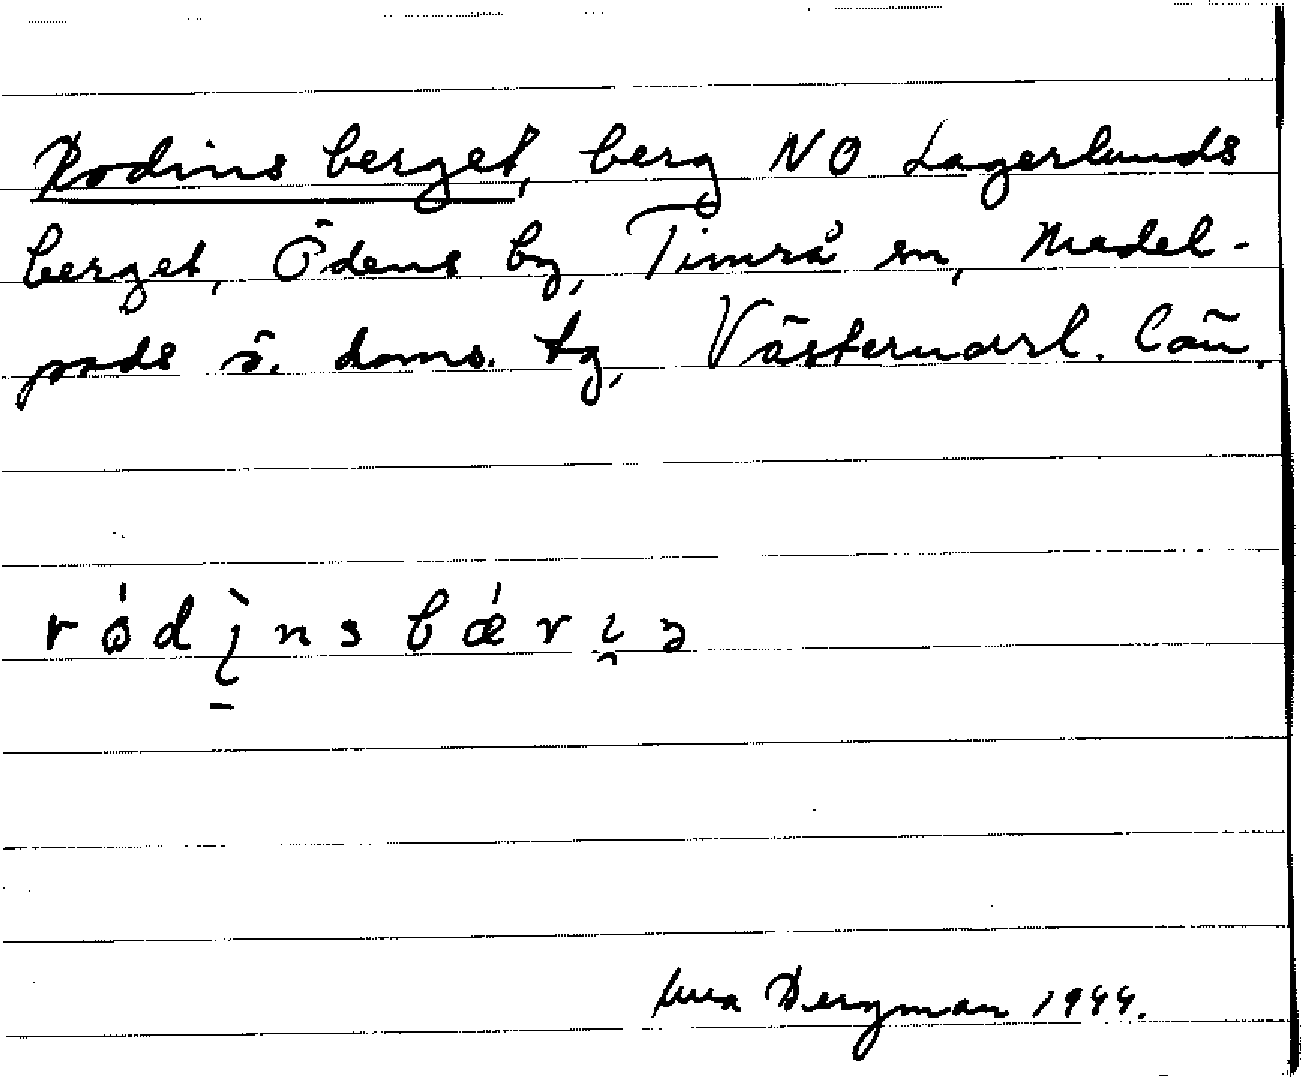 Rodins berget, berg NO Lagerlunds
berget, Ödens by, Timrå sn, Medel-
pads ö. doms. tg, Västernorrl. län.
ródinsbǽriə
Bergman 1944.